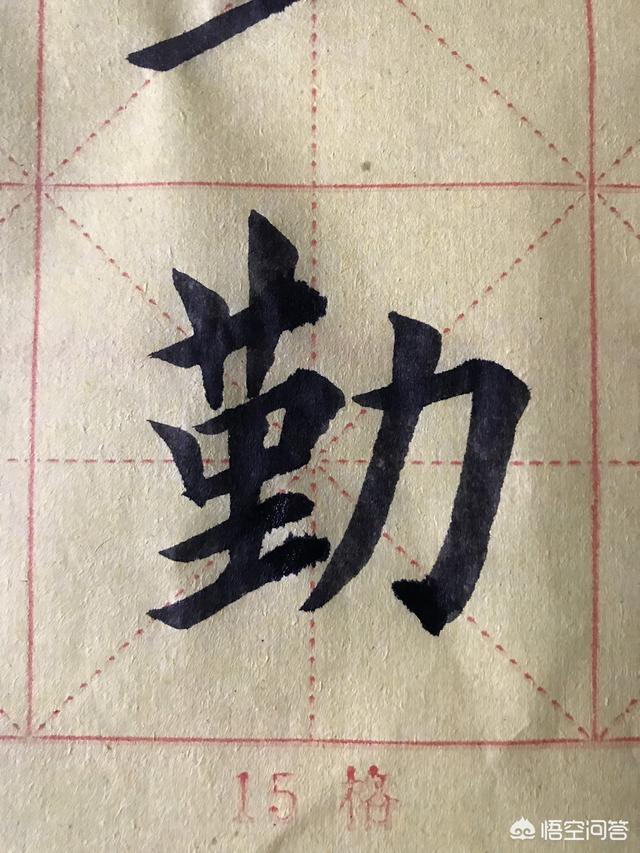 勤
15 格
悟空问答